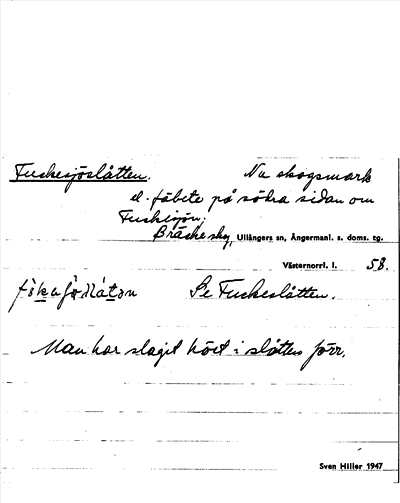 Fuskesjöslåtten. Nu skogsmark
el. fäbete på södra sidan om
Fuskesjön;
Bräckeskog, Ullångers sn, Ångermanl. s. doms. tg.
Västernorrl. l. 58.
Se Fuskeslåtten.
Man har slagit höet i slåtten förr.
Sven Hiller 1947